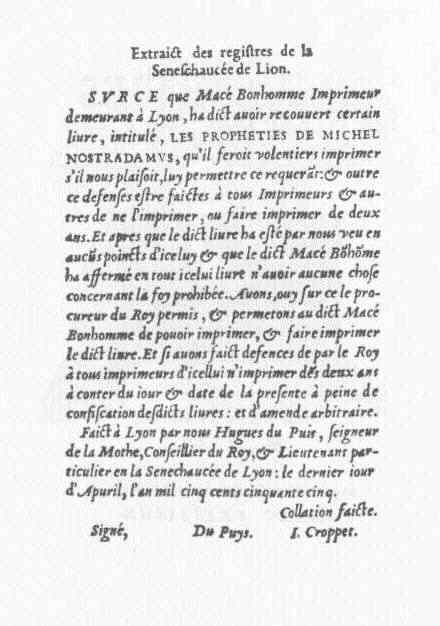 Extraict des regiſtres de la
Seneſchaucée de Lion.
SVRCE que Macé Bonhomme Imprimeur
demeurant à Lyon, ha dict auoir recouuert certain
liure, intitulé, LES PROPHETIES DE MICHEL
NOSTRADAMVS, qu'il feroit volentiers imprimer
s'il nous plaiſoit, luy permettre ce requerãt: & outre
ce defenſes eſtre faictes à tous Imprimeurs & au-
tres de ne l'imprimer, ou faire imprimer de deux
ans. Et apres que le dict liure ha eſté par nous veu en
aucũs poincts d'iceluy & que le dict Macé Bõhõme
ha affermé en tout icelui liure n'auoir aucune choſe
concernant la foy prohibée. Auons, ouy ſur ce le pro-
cureur du Roy permis, & permetons au dict Macé
Bonhomme de pouoir imprimer, & faire imprimer
le dict liure. Et ſi auons faict defences de par le Roy
à tous imprimeurs d'icellui n'imprimer dés deux ans
à conter du iour & date de la preſente à peine de
confiſcation deſdicts liures: et d'amende arbitraire.
Faict à Lyon par nous Hugues du Puis, ſeigneur
de la Mothe, Conſeillier du Roy, & Lieutenant par-
ticulier en la Senechaucée de Lyon: le dernier iour
d'Apuril, l'an mil cinq cents cinquante cinq.
Collation faicte.
Signé, Du Puys. I. Croppet.